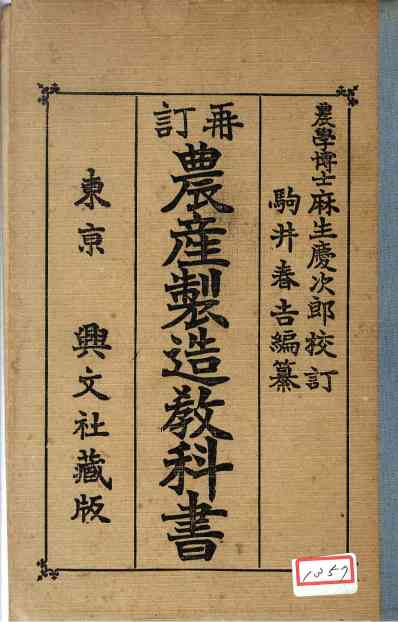 農學博士麻生慶次郎校訂
駒井春吉編纂
再訂
農産製造敎科書
東京 興文社藏版
1357